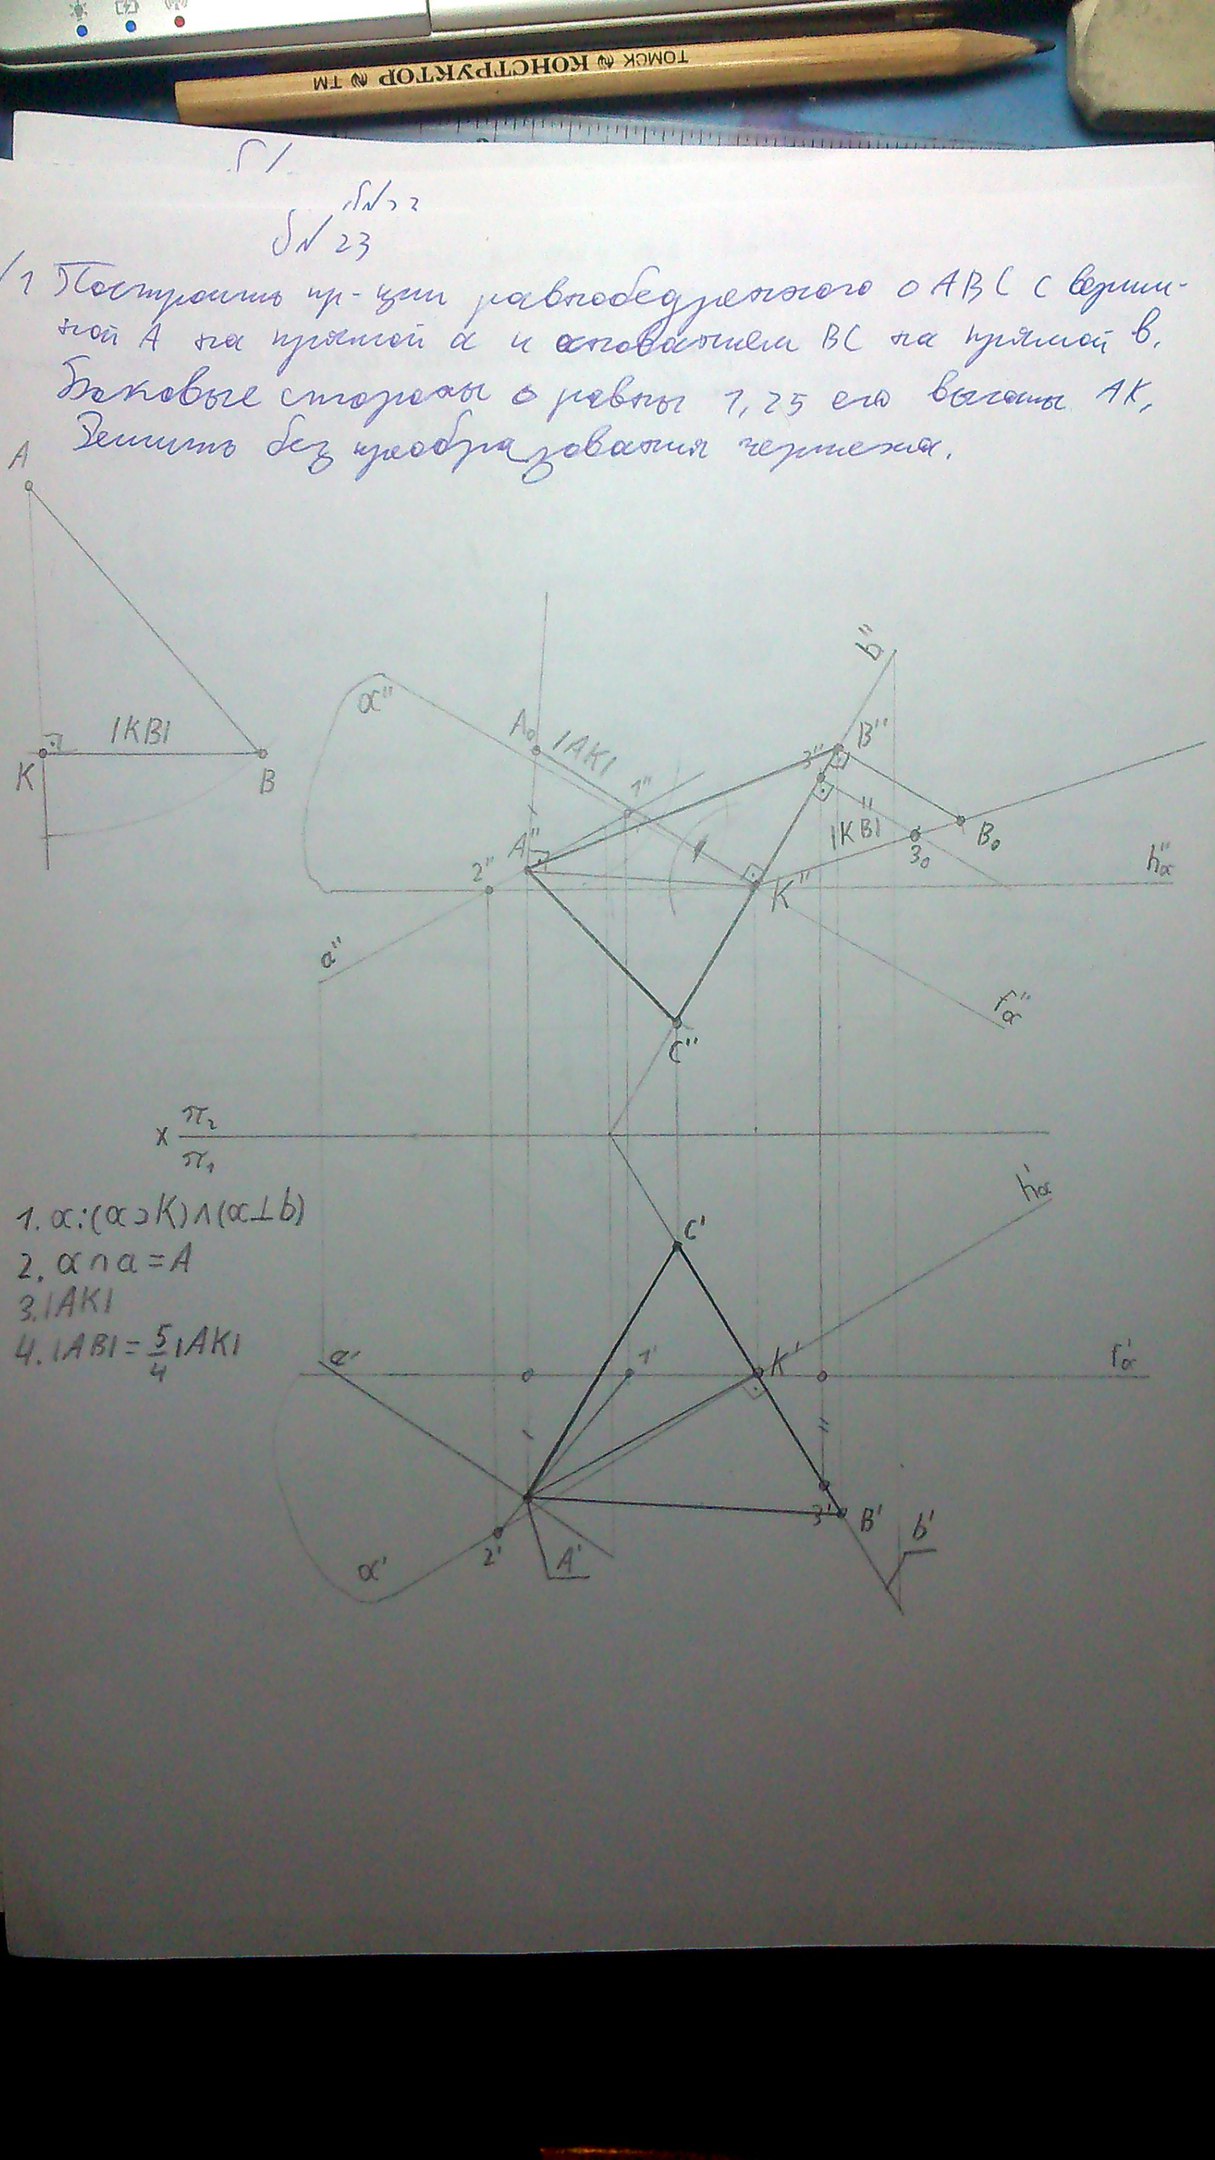 ТОМСК КОНСТРУКТОР ТМ
б/
бN 22
бN 23
1 Построить пр-ции равнобедренного △ ABC с верши-
ной A на прямой a и основанием BC на прямой b.
Боковые стороны △ равны 1,25 его высоты AK,
Решить без преобразования чертежа.
A
|KB|
K
B
b''
α''
A₀
|AK|
1''
3''
B''
A''
2''
|KB|
3₀
B₀
h''α
K''
a''
f''α
C''
x π₂
π₁
h'α
1. α:(α⊃K)∧(α⊥b)
2. α∩a=A
3. |AK|
4. |AB|=5/4|AK|
C'
a'
1'
K'
f'α
3'
B'
b'
2'
A'
α'